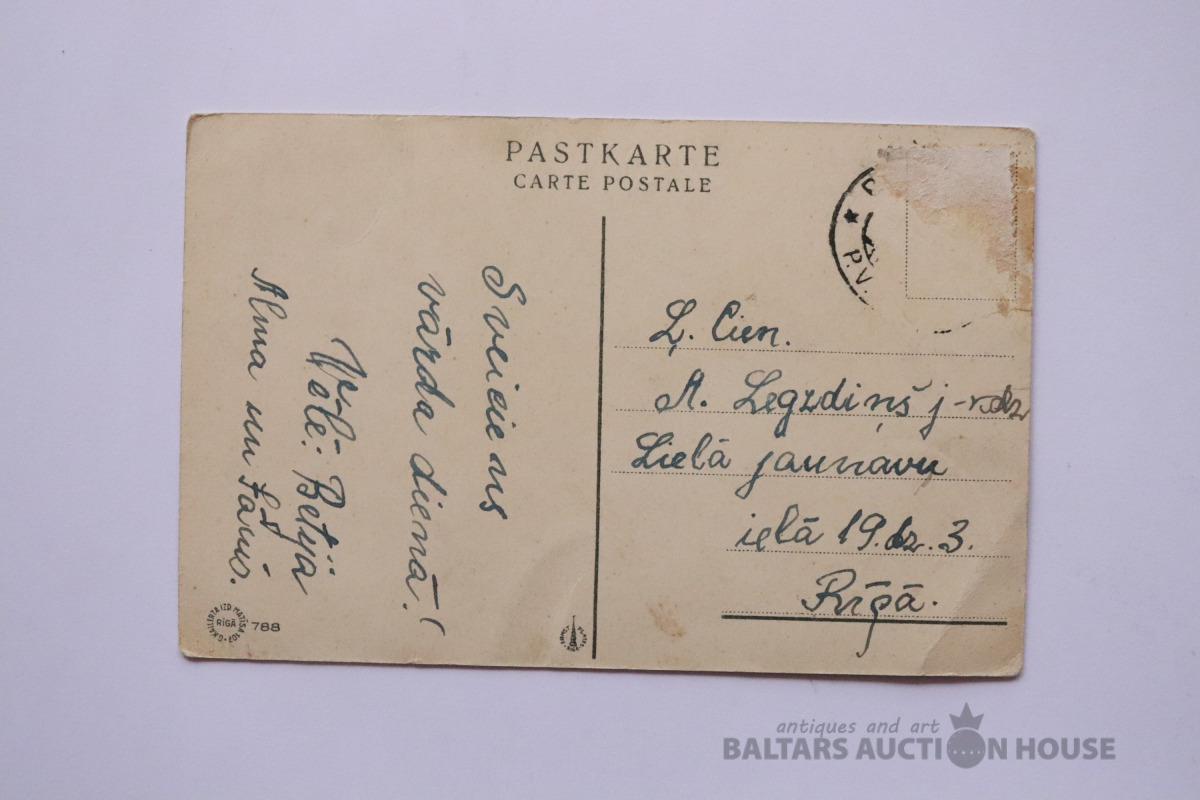 PASTKARTE
CARTE POSTALE
Sveiciens
vārda dienā!
Vēlē: Betija
Alma un Jānis.
Ļ. Cien.
A. Legzdiņš j-rdz
Lielā jaunavu
ielā 19. dz. 3.
Rīgā.
P.V.
RĪGĀ
788
antiques and art
BALTARS AUCTION HOUSE